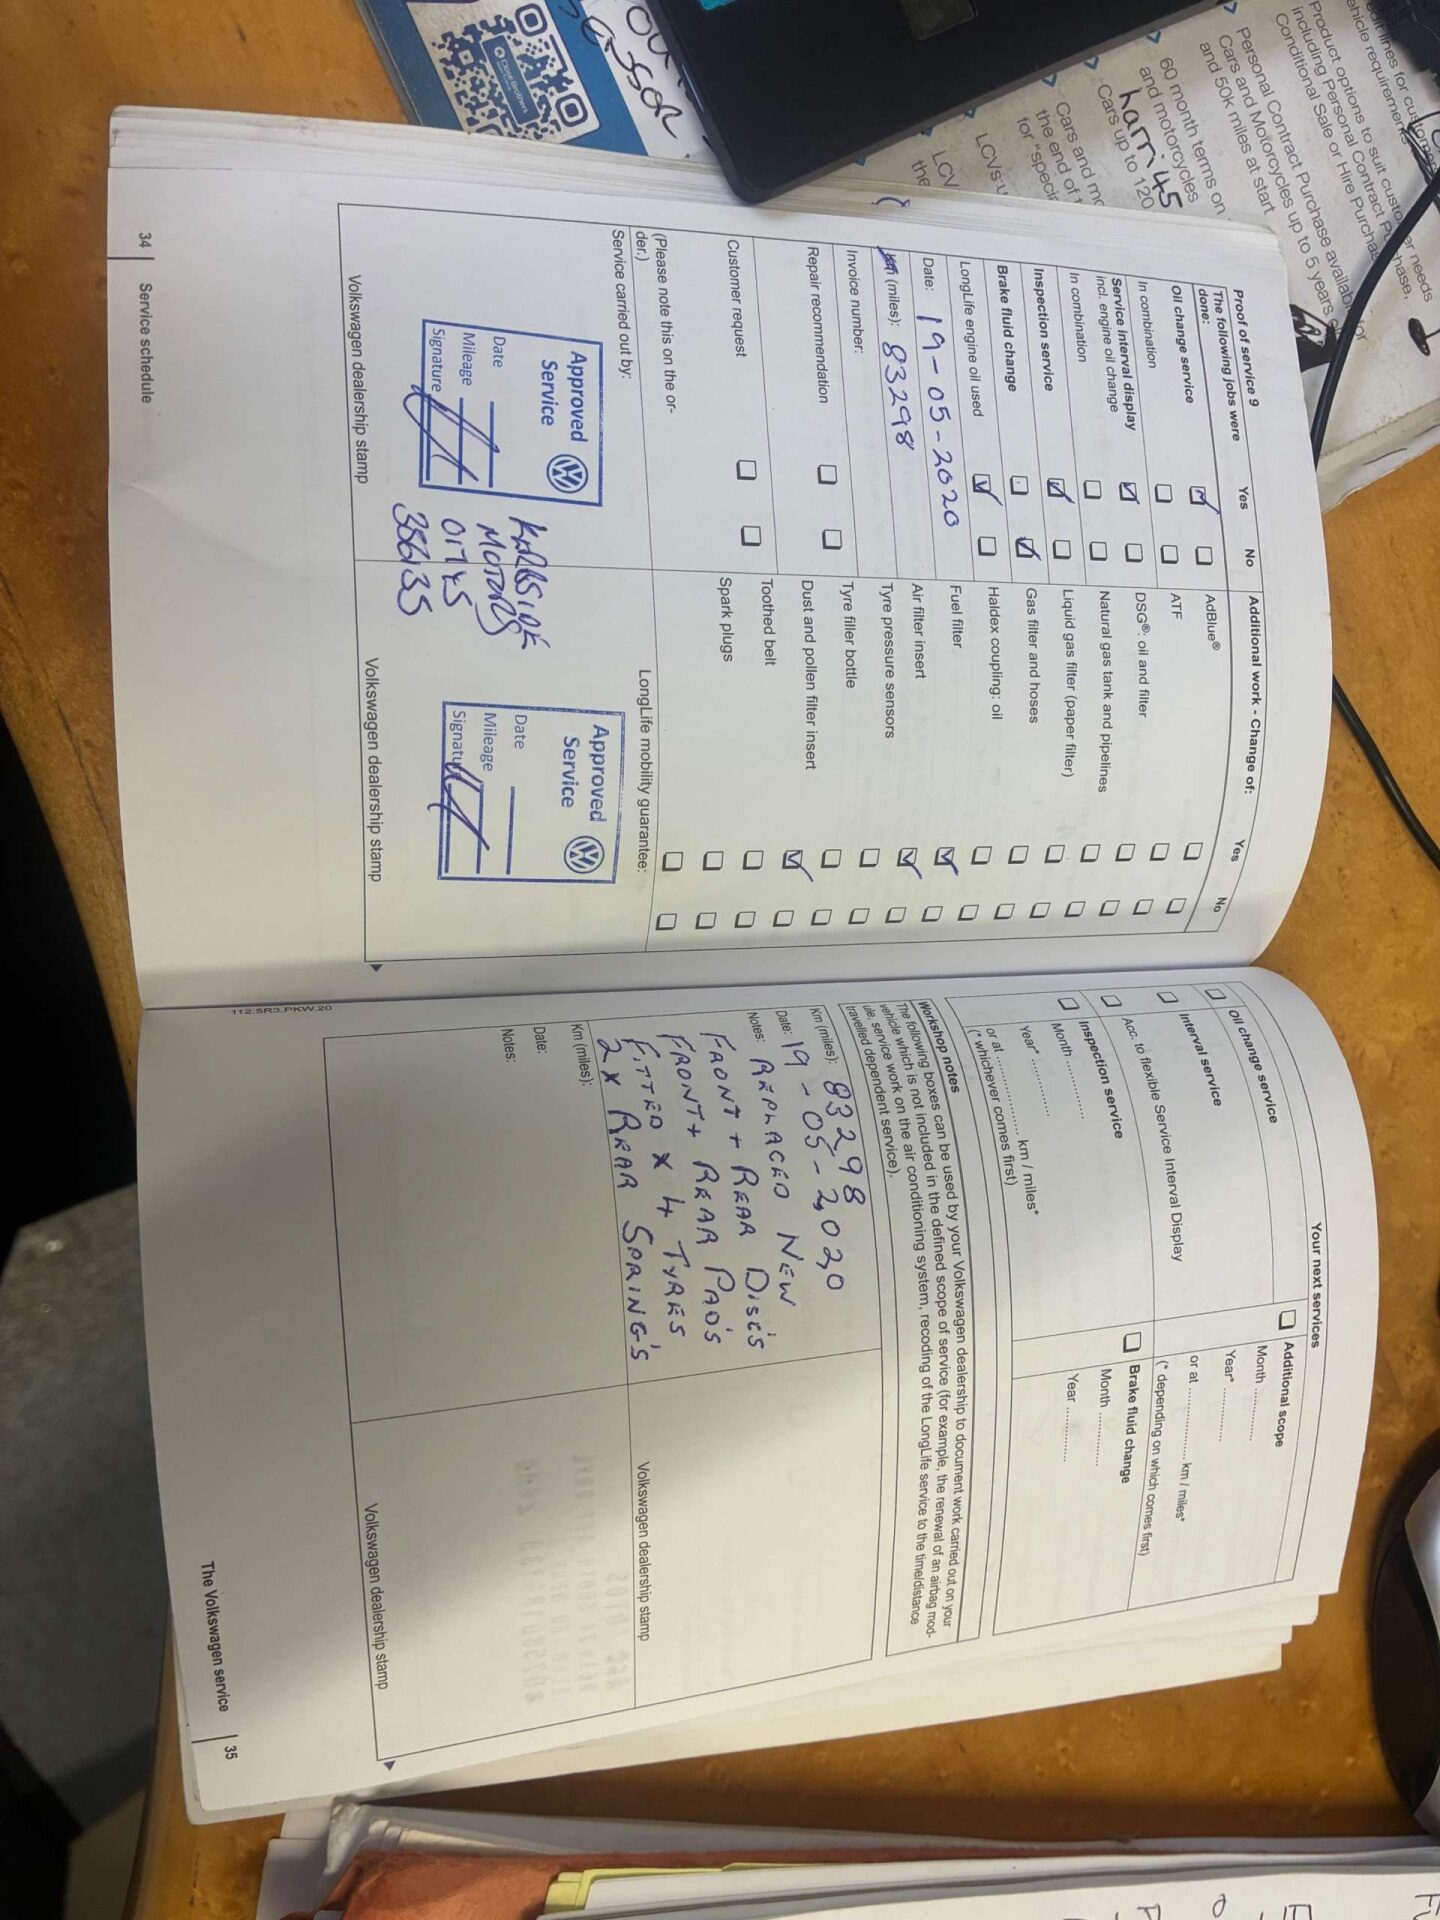 Proof of service 9
The following jobs were done:
Yes No
Oil change service
In combination
Service interval display
incl. engine oil change
In combination
Inspection service
Brake fluid change
LongLife engine oil used
Date: 19-05-2020
Km (miles): 83298
Invoice number:
Repair recommendation
Customer request
(Please note this on the or-
der.)
Service carried out by:
Approved
Service
Date
Mileage
Signature
MOTORS
386135
Volkswagen dealership stamp
34 Service schedule
Additional work - Change of: Yes No
AdBlue®
ATF
DSG®: oil and filter
Natural gas tank and pipelines
Liquid gas filter (paper filter)
Gas filter and hoses
Haldex coupling: oil
Fuel filter
Air filter insert
Tyre pressure sensors
Tyre filler bottle
Dust and pollen filter insert
Toothed belt
Spark plugs
LongLife mobility guarantee:
Approved
Service
Date
Mileage
Signatu
Volkswagen dealership stamp
Your next services
Oil change service
Interval service
Acc. to flexible Service Interval Display
Inspection service
Month
Year*
or at km / miles*
(* whichever comes first)
Additional scope
Month
Year*
or at km / miles*
(* depending on which comes first)
Brake fluid change
Month
Year
Workshop notes
The following boxes can be used by your Volkswagen dealership to document work carried out on your
vehicle which is not included in the defined scope of service (for example, the renewal of an airbag mod-
ule, service work on the air conditioning system, recoding of the LongLife service to the time/distance
travelled dependent service).
Km (miles): 83298
Date: 19-05-2020
Notes: REPLACED NEW
FRONT + REAR DISC'S
FRONT + REAR PAD'S
FITTED X 4 TYRES
2X REAR SPRING'S
Volkswagen dealership stamp
Km (miles):
Date:
Notes:
Volkswagen dealership stamp
112.5R3.PKW.20
The Volkswagen service 35
Close Brothers
harri45
Product options to suit customer needs
including Personal Contract Purchase,
Conditional Sale or Hire Purchase
Personal Contract Purchase available for
Cars and Motorcycles up to 5 years
and 50K miles at start
60 month terms on
and motorcycles
Cars up to 120
Cars and mo
the end of t
for "speci
LCVs u
LCV
the